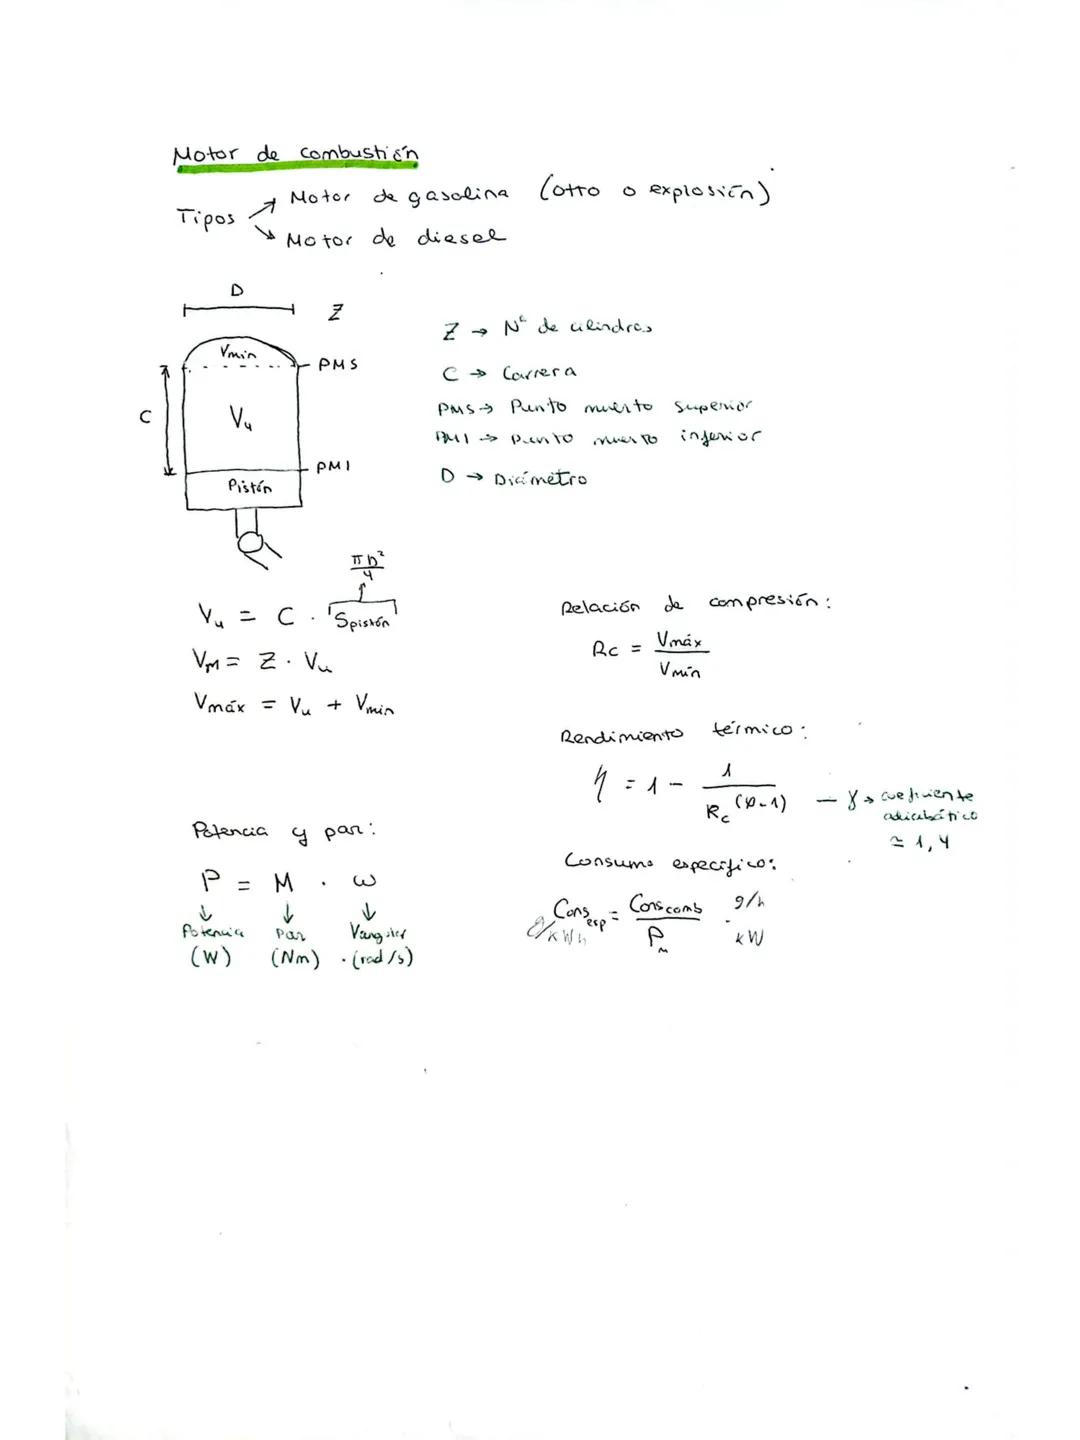 Motor de combustión
Tipos
Motor de gasolina (otto o explosión)
Motor de diesel
D
Z
Vmin
PMS
C
Vu
PMI
Pistón
Z → Nº de cilindros
C → Carrera
PMS → Punto muerto superior
PMI → Punto muerto inferior
D → Diámetro
πD²/4
Vu = C · Spistón
VM = Z · Vu
Vmáx = Vu + Vmin
Relación de compresión:
Rc = Vmáx / Vmín
Rendimiento térmico:
η = 1 - 1 / Rc^(γ-1) — γ → coeficiente
adiabático
≃ 1,4
Potencia y par:
P = M · ω
Potencia Par Vangular
(W) (Nm) · (rad/s)
Consumo específico:
Consesp = Conscomb / Pm
g/h
kW
g/kWh